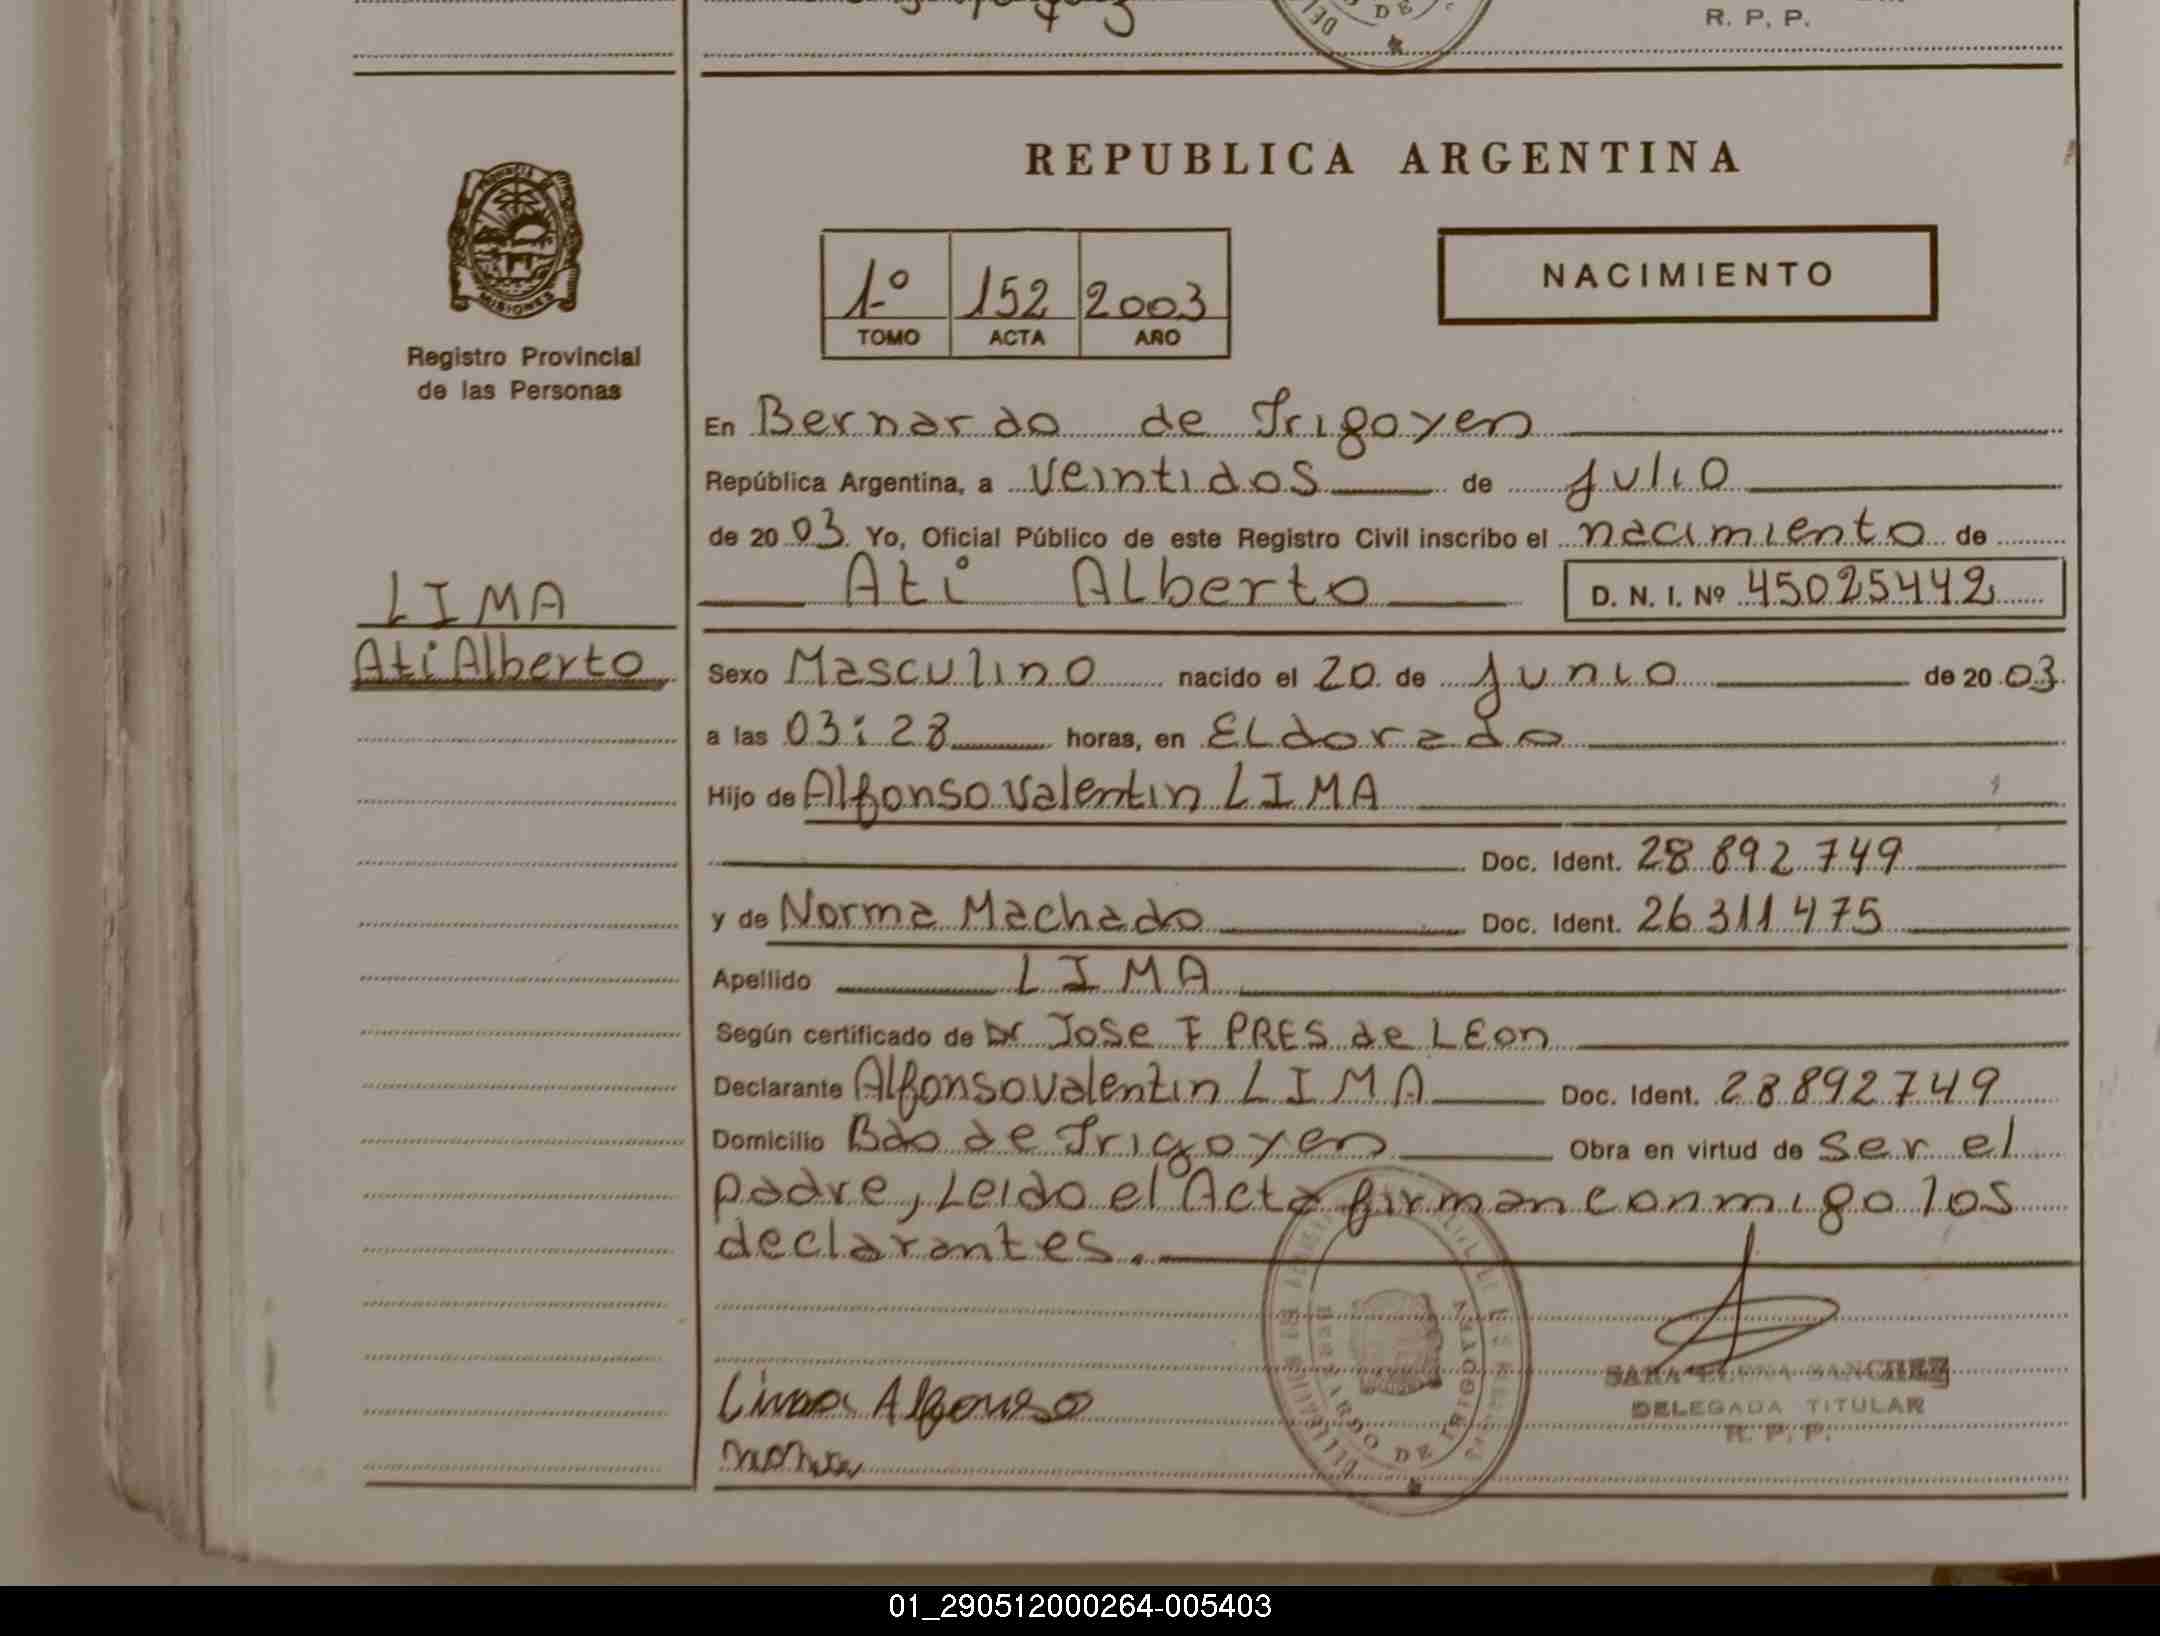 R. P. P.
REPUBLICA ARGENTINA
NACIMIENTO
1º 152 2003
TOMO ACTA AÑO
MISIONES
Registro Provincial
de las Personas
En Bernardo de Irigoyen
República Argentina, a veintidos de julio
de 20 03. Yo, Oficial Público de este Registro Civil inscribo el nacimiento de
LIMA
Ati Alberto
Ati Alberto D. N. I. Nº 45025442
Sexo Masculino nacido el 20 de junio de 20 03
a las 03:28 horas, en Eldorado
Hijo de Alfonso Valentin LIMA
Doc. Ident. 28 892 749
y de Norma Machado Doc. Ident. 26 311 475
Apellido LIMA
Según certificado de Dr Jose F PRES de LEon
Declarante Alfonso Valentin LIMA Doc. Ident. 28892749
Domicilio Bdo de Irigoyen Obra en virtud de ser el
padre, Leido el Acta firman conmigo los
declarantes.
Lima Alfonso
SARA ELENA SANCHEZ
DELEGADA TITULAR
R. P. P.
BERNARDO DE IRIGOYEN
01_290512000264-005403